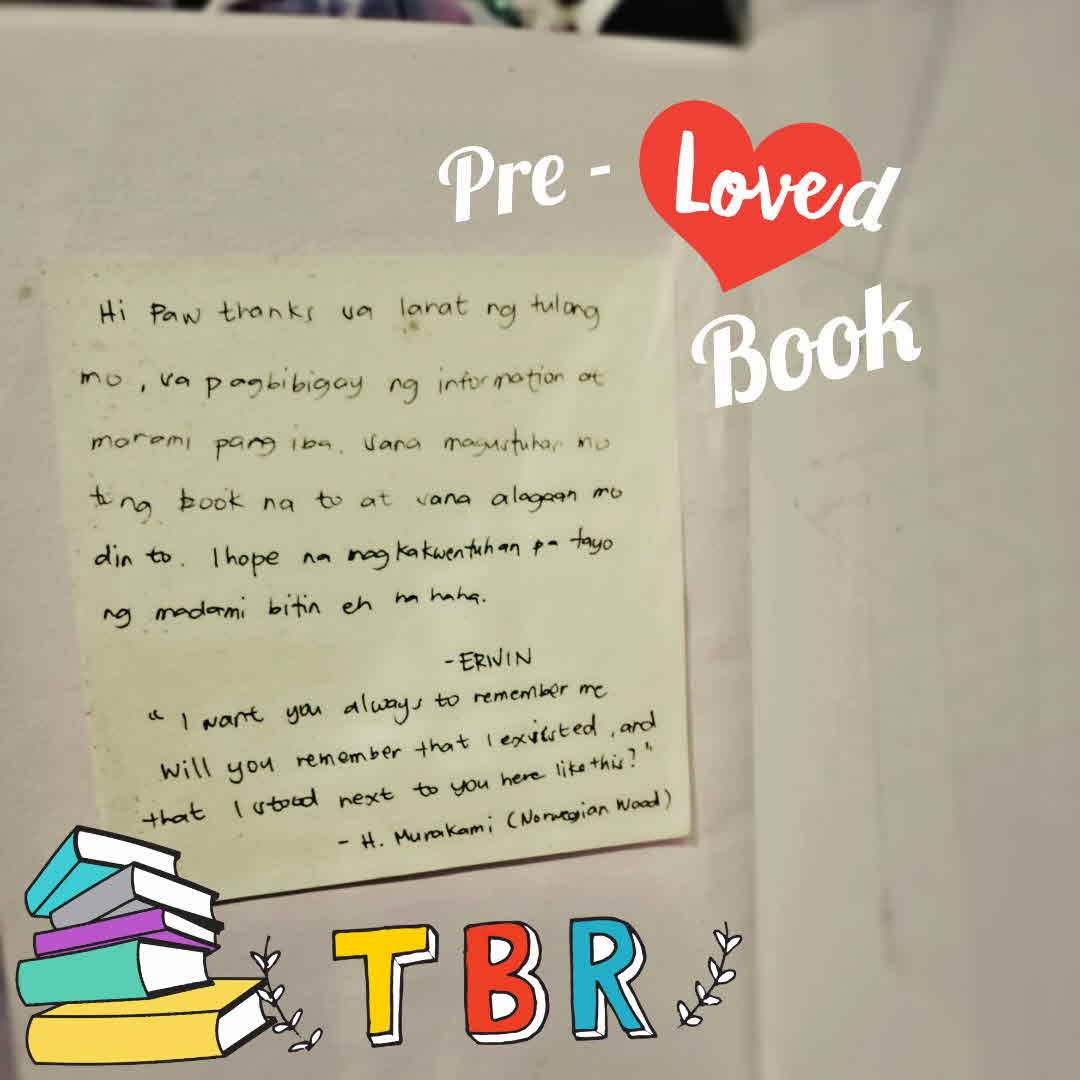 Pre - Loved
Book
Hi Paw thanks sa lahat ng tulong
mo, sa pagbibigay ng information at
marami pang iba. Sana magustuhan mo
tong book na to at sana alagaan mo
din to. I hope na magkakwentuhan pa tayo
ng madami bitin eh ha haha.
- ERWIN
" I want you always to remember me
Will you remember that I existed, and
that I stood next to you here like this? "
- H. Murakami (Norwegian Wood)
TBR